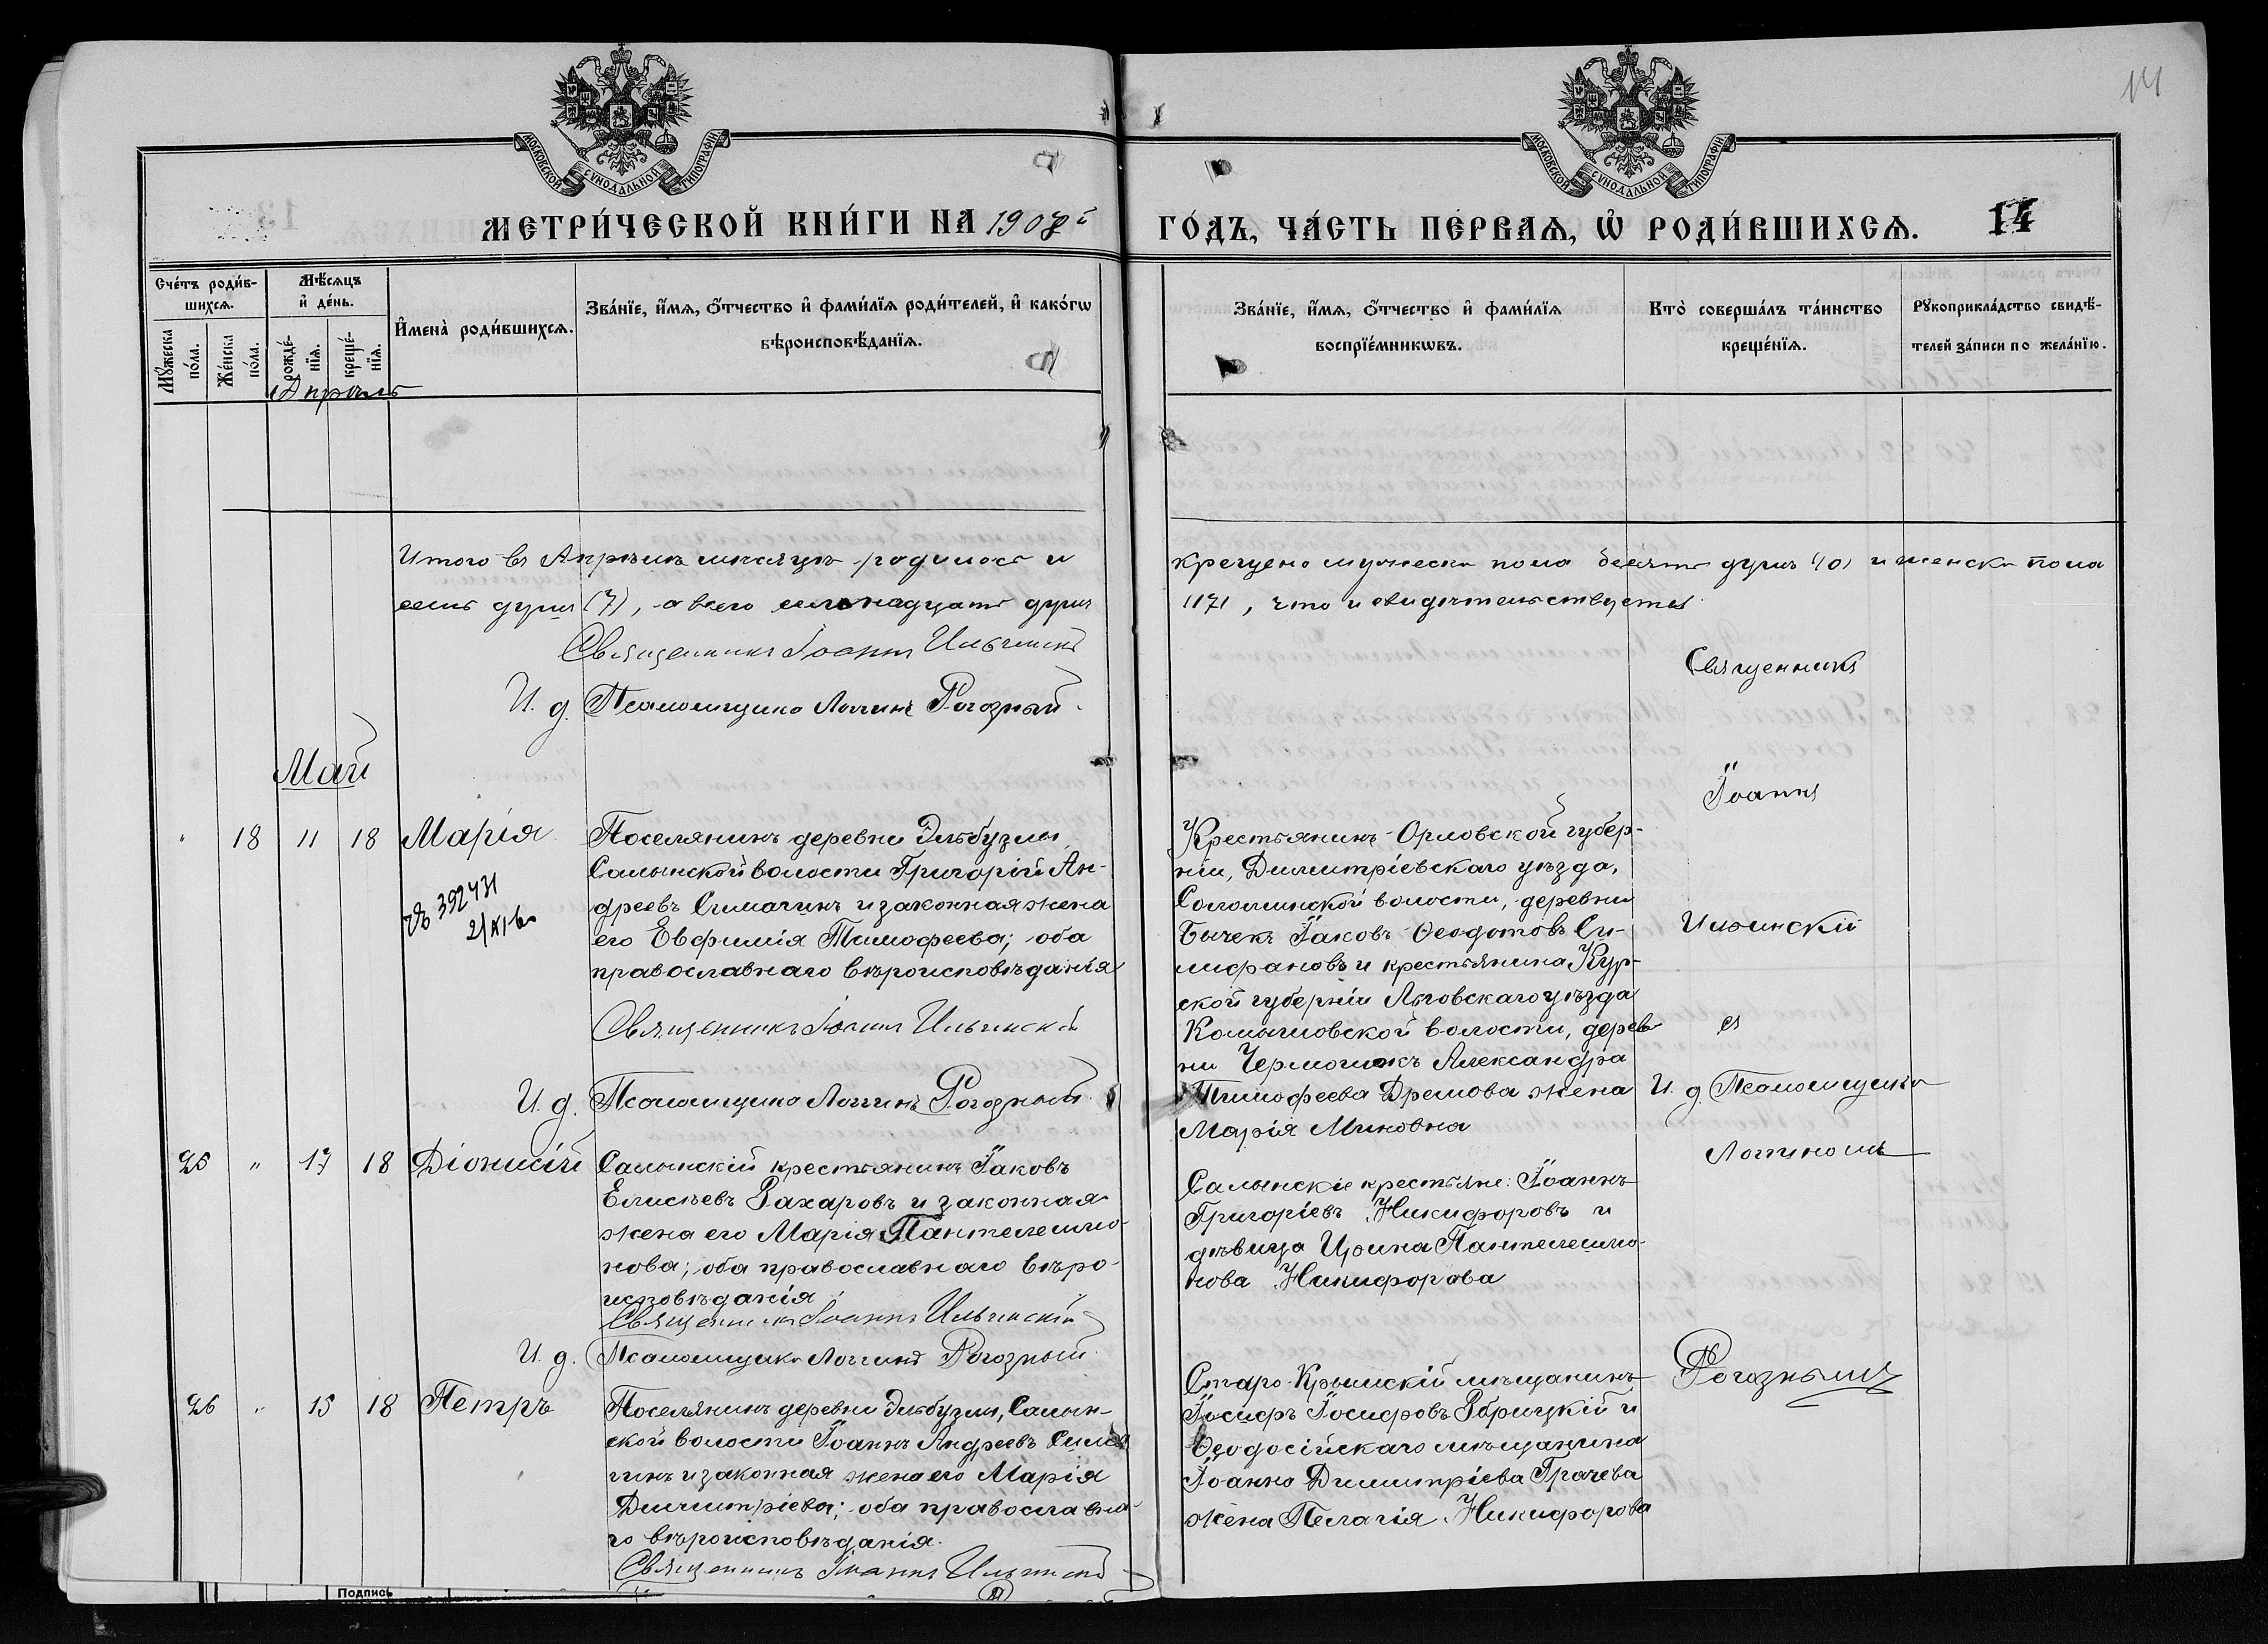 14
МОСКОВСКОЙ СѴНОДАЛЬНОЙ ТИПОГРАФІИ
МОСКОВСКОЙ СѴНОДАЛЬНОЙ ТИПОГРАФІИ
МЕТРИ́ЧЕСКОЙ КНИ́ГИ НА 1908й
ГО́ДЪ, ЧА́СТЬ ПЕ́РВАѦ, Ѽ РОДИ́ВШИХСѦ. 14
Сче́тъ роди́в-
шихсѧ.
Мꙋ́жеска
по́ла.
Же́нска
по́ла.
Мѣ́сѧцъ
и҆ де́нь.
рожде́-
нїѧ.
креще́-
нїѧ.
И҆мена̀ роди́вшихсѧ.
Зва́нїе, и҆́мѧ, ѻ҆́тчество и҆ фами́лїѧ роди́телей, и҆ како́гѡ
вѣроисповѣ́данїѧ.
Зва́нїе, и҆́мѧ, ѻ҆́тчество и҆ фами́лїѧ
воспрїе́мникѡвъ.
Кто̀ соверша́лъ та́инство
креще́нїѧ.
Рꙋкоприкла́дство свидѣ́-
телей за́писи по жела́нїю.
Апрѣль
Итого въ Апрѣлѣ мѣсяцѣ родилось и
крещено мужеска пола десять душъ (10) и женска пола
семь душъ (7), а всего семьнадцать душъ
(17), что и свидѣтельствуемъ
Священникъ Іоаннъ Ильинскій
И. д. Псаломщика Логгинъ Рогозный.
Май
" 18 11 18 Марія
Поселянинъ деревни Эльбузлы
Салынской волости Григорій Ан-
дреевъ Симачинъ и законная жена
его Евфимія Тимофеева; оба
православнаго вѣроисповѣданія
392431
Священникъ Іоаннъ Ильинскій
И. д. Псаломщика Логгинъ Рогозный.
Крестьянинъ Орловской губер-
ніи, Димитріевскаго уѣзда,
Соломинской волости, деревни
Бычекъ Іаковъ Ѳеодотовъ Си-
лифановъ и крестьянина Кур-
ской губерніи Льговскаго уѣзда
волости, дерев-
ни Александра
Тимофеева Дремова жена
Марія Миновна
Священникъ
Іоаннъ
Ильинскій
съ
И. д. Псаломщика
Логгиномъ
Рогознымъ
25 " 17 18 Діонисій
Салынскій крестьянинъ Іаковъ
Елисѣевъ Захаровъ и законная
жена его Марія Пантелеимо-
нова; оба православнаго вѣро-
исповѣданія
Священникъ Іоаннъ Ильинскій
И. д. Псаломщика Логгинъ Рогозный.
Салынскіе крестьяне: Іоаннъ
Григоріевъ Никифоровъ и
дѣвица Ирина Пантелеимо-
нова Никифорова
26 " 15 18 Петръ
Поселянинъ деревни Эльбузлы, Салын-
ской волости Іоаннъ Андреевъ Сима-
чинъ и законная жена его Марія
Димитріева; оба православна-
го вѣроисповѣданія.
Священникъ Іоаннъ Ильинскій
Старо-Крымскій мѣщанинъ
Іосифъ Іосифовъ Збрицкій и
Ѳеодосійскаго мѣщанина
Іоанна Димитріева Грачева
жена Пелагія Никифорова
Подпись